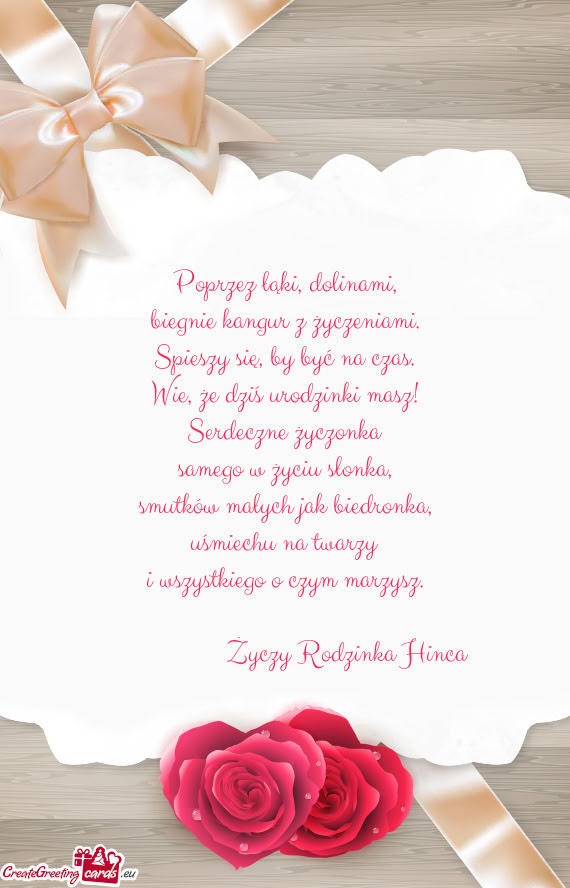 Poprzez łąki, dolinami,
biegnie kangur z życzeniami.
Spieszy się, by być na czas.
Wie, że dziś urodzinki masz!
Serdeczne życzonka
samego w życiu słonka,
smutków małych jak biedronka,
uśmiechu na twarzy
i wszystkiego o czym marzysz.
Życzy Rodzinka Hinca
CreateGreeting cards .eu